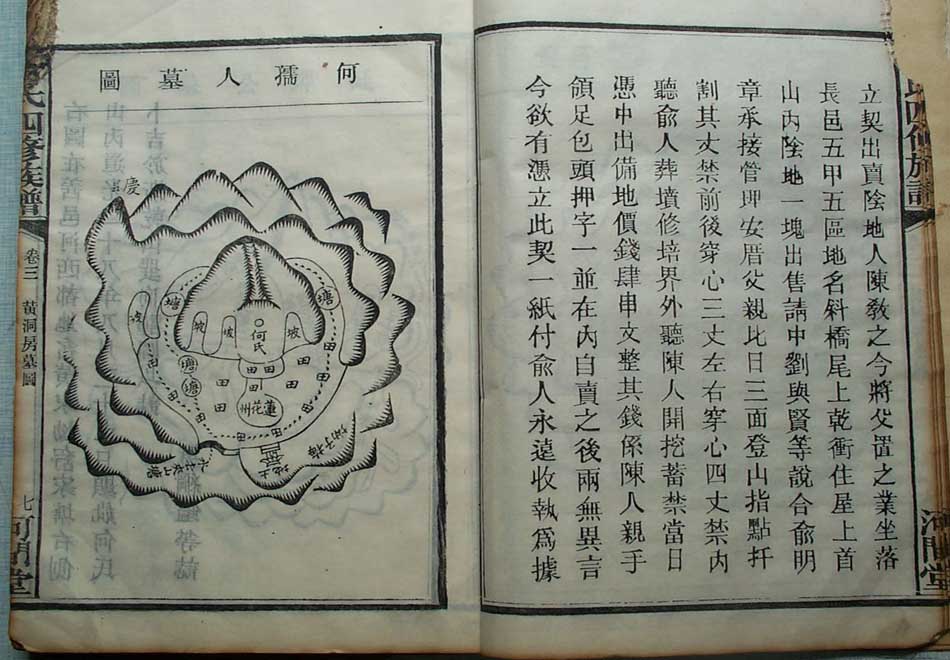 立契出賣陰地人陳敎之今將父置之業坐落
長邑五甲五區地名斜橋尾上乾衝住星上首
山內陰地一塊出售請中劉與賢等說合俞明
章承接管理安厝父親比日三面登山指點扦
割其丈禁前後穿心三丈左右穿心四丈禁內
聽俞人葬墳修培界外聽陳人開挖蓄禁當日
憑中出備地價錢肆串文整其錢係陳人親手
領足包頭押字一並在內自賣之後兩無異言
今欲有憑立此契一紙付俞人永遠收執爲據
何孺人墓圖
慶雲
塘
塘
坡
坡
坡
坡
何氏
田
田
田
塘
塘
田
田
田
田
田
田
田
蓮花州
田
田
氏四修族譜
卷三
黃洞房墓圖
七
河間堂
河間堂